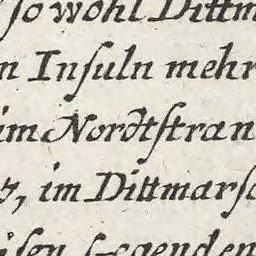 ſowohl Dittm
n Inſuln mehr
im Nordtſtran
z, im Dittmarſc
iſen Gegenden